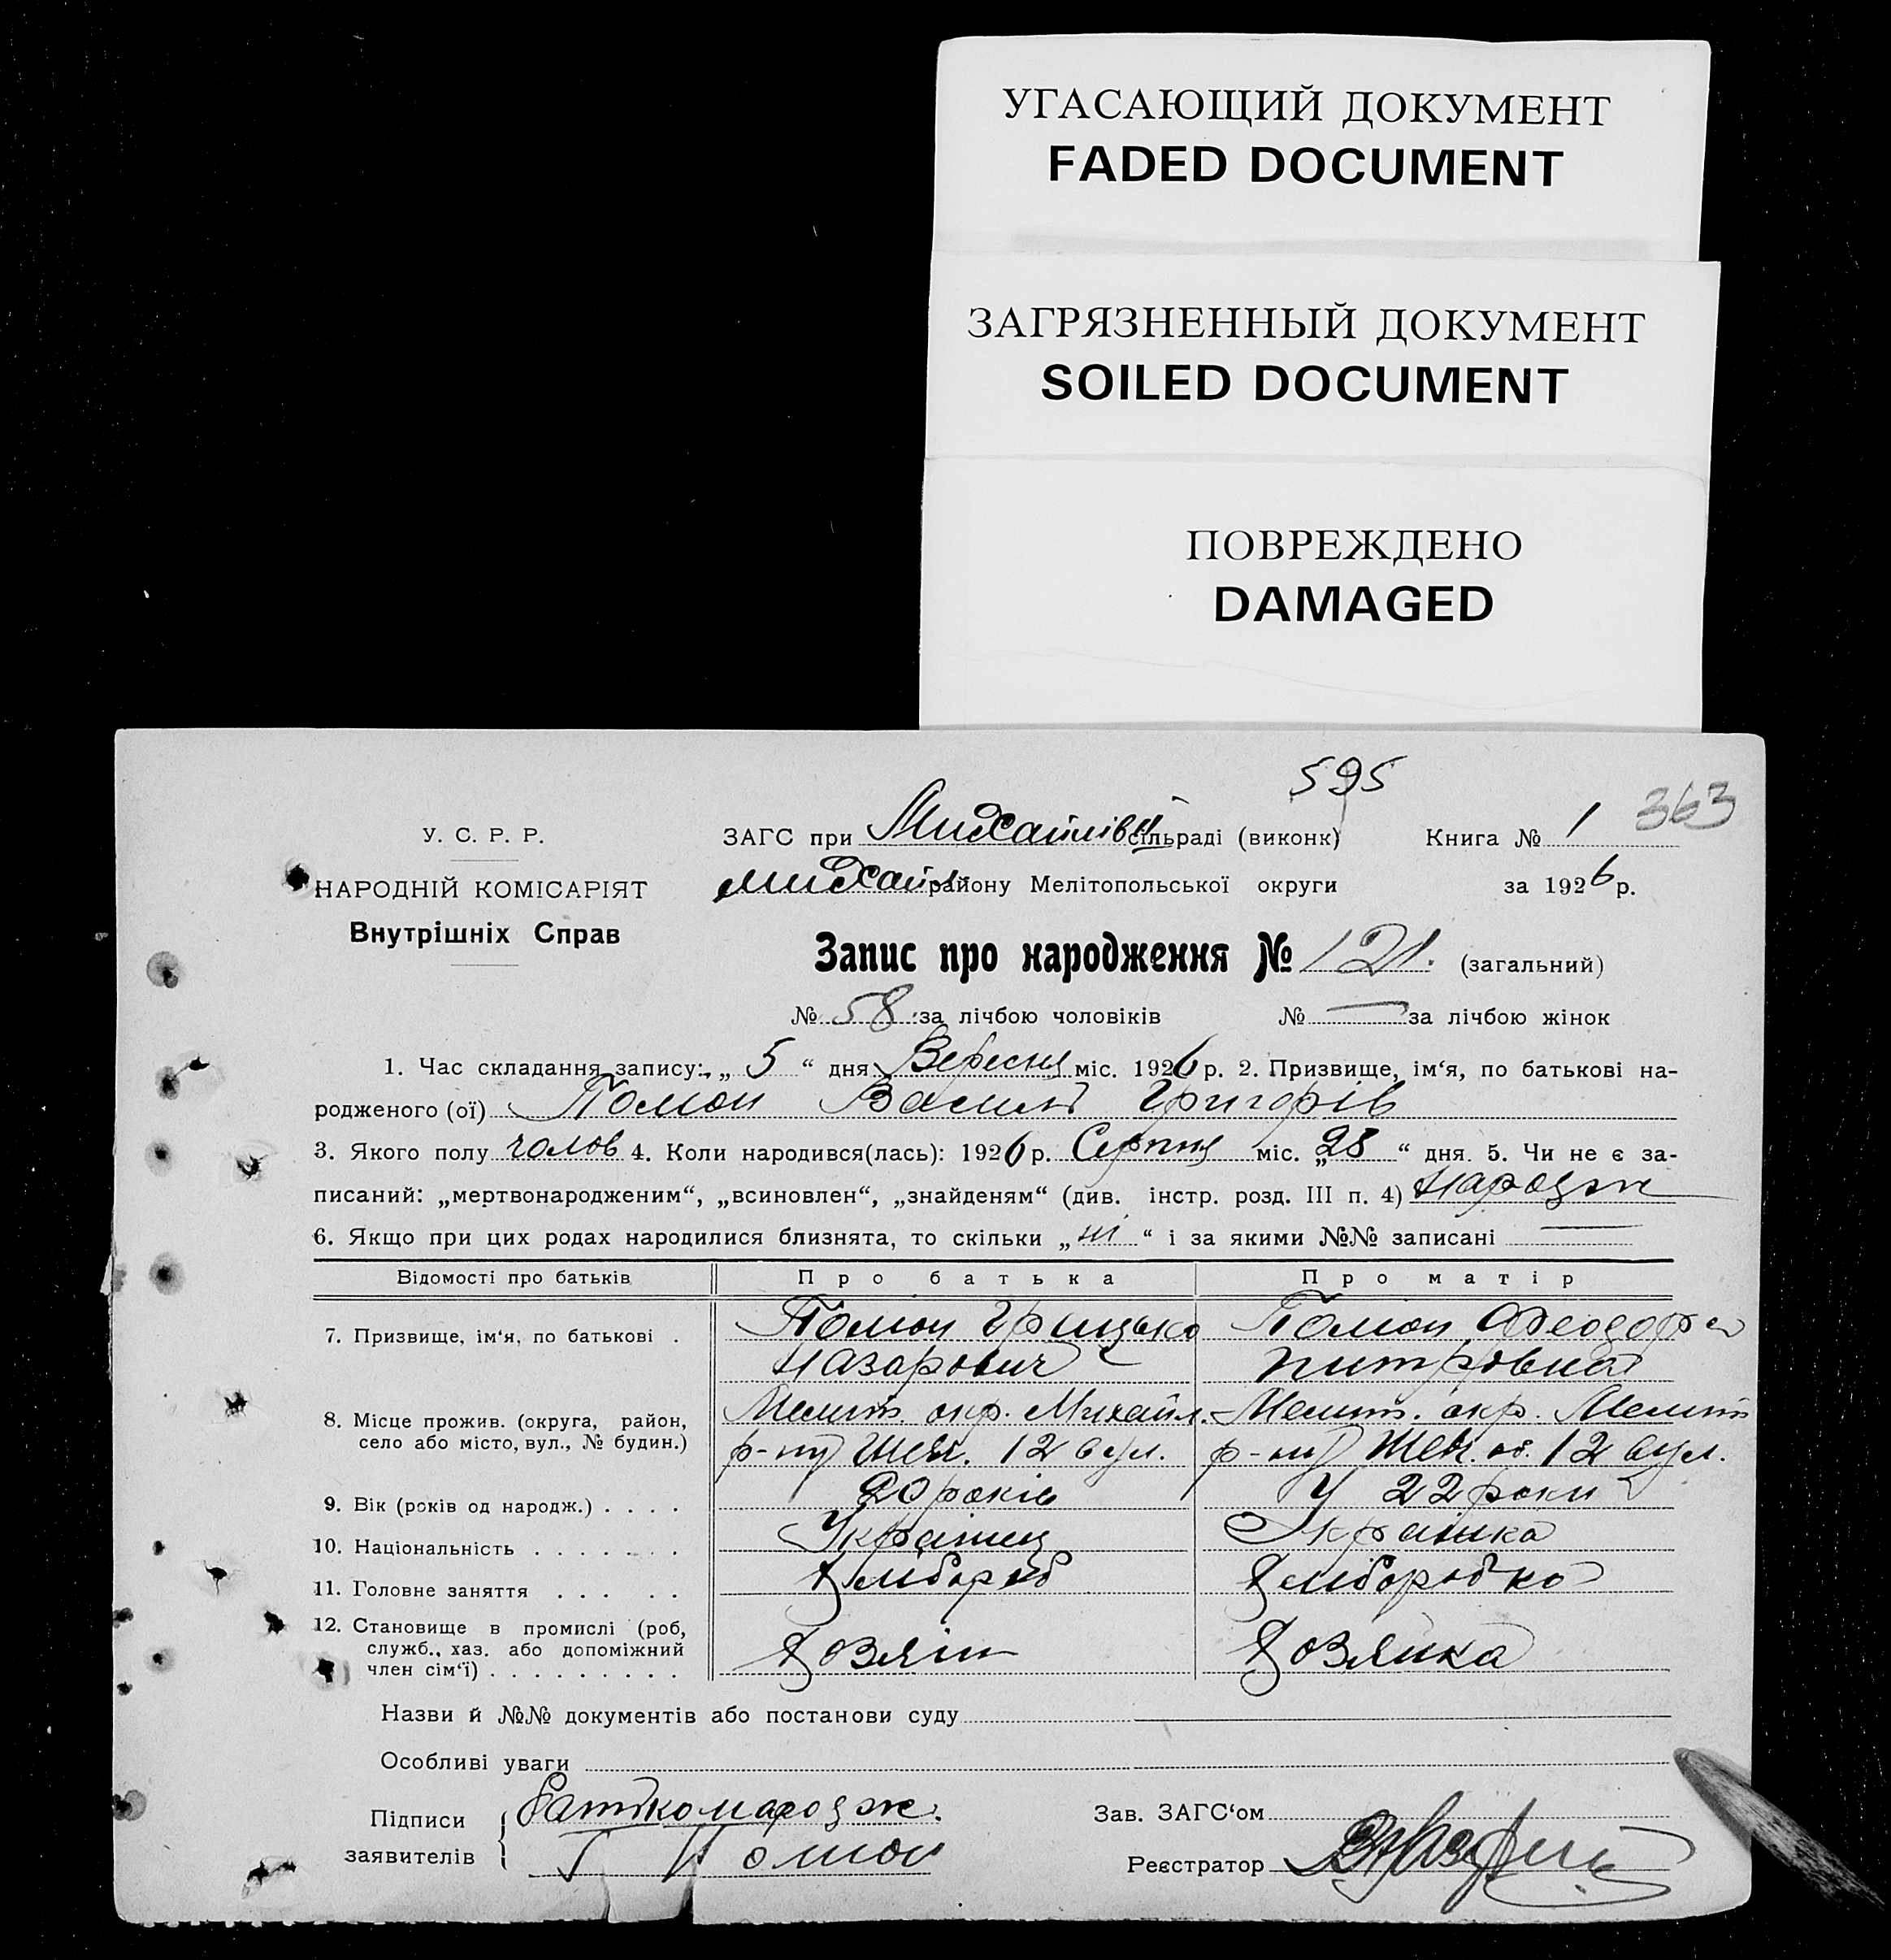 УГАСАЮЩИЙ ДОКУМЕНТ
FADED DOCUMENT
ЗАГРЯЗНЕННЫЙ ДОКУМЕНТ
SOILED DOCUMENT
ПОВРЕЖДЕНО
DAMAGED
595
363
У. С. Р. Р.
ЗАГС при Михайлівй сільраді (виконк) Книга № 1
НАРОДНІЙ КОМІСАРІЯТ
Михайл району Мелітопольської округи за 1926 р.
Внутрішніх Справ
Запис про народження № 121. (загальний)
№ 58 за лічбою чоловіків № — за лічбою жінок
1. Час складання запису: „ 5 “ дня Вересня міс. 1926 р. 2. Призвище, ім‘я, по батькові на-
родженого (ої) Василь Григорів
3. Якого полу чолов 4. Коли народився(лась): 1926 р. Серпня міс. „28 “ дня. 5. Чи не є за-
писаний: „мертвонародженим“, „всиновлен“, „знайденям“ (див. інстр. розд. III п. 4) Народж
6. Якщо при цих родах народилися близнята, то скільки „ ні “ і за якими №№ записані —
Відомості про батьків Про батька Про матір
7. Призвище, ім‘я, по батькові . Грицько Феодора
Назарович Питровна
8. Місце прожив. (округа, район, Меліт. окр. Михайл. Меліт. окр. Меліт
село або місто, вул., № будин.) р-ну Шев. 12 вул. р-ну 12 вул.
9. Вік (років од народж.) . . . . 20 років 22 роки
10. Національність . . . . . . . Українец Українка
11. Головне заняття . . . . . Хлібороб Хліборобка
12. Становище в промислі (роб,
служб., хаз. або допоміжний Хозяін Хозяйка
член сім‘ї) . . . . . . . . .
Назви й №№ документів або постанови суду
Особливі уваги
Підписи Батько народж.
Зав. ЗАГС‘ом
заявителів Г
Реєстратор